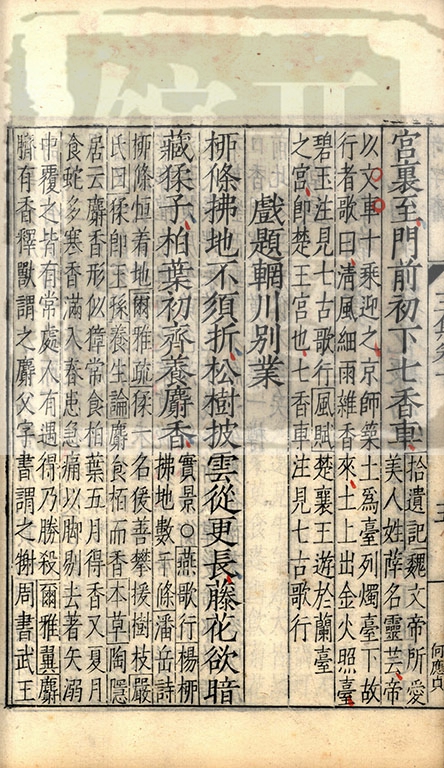 宮裏至門前初下七香車
拾遺記魏文帝所愛
美人姓薛名靈芸帝
以文車十乘迎之京師築土為臺列燭臺下故
行者歌曰清風細雨雜香來土上出金火照臺
碧玉注見七古歌行風賦楚襄王遊於蘭臺
之宮即楚王宮也七香車注見七古歌行
戲題輞川別業
柳條拂地不須折松樹披雲從更長藤花欲暗
藏猱子柏葉初齊養麝香
實景○燕歌行楊柳
拂地數千條潘岳詩
柳條恒着地爾雅疏猱一名猨善攀援樹枝嚴
氏曰猱即王孫養生論麝食栢而香本草陶隱
居云麝香形似獐常食柏葉五月得香又夏月
食蛇多寒香滿入春患急痛以脚剔去著矢溺
中覆之皆有常處人有遇得乃勝殺爾雅翼麝
臍有香釋獸謂之麝父字書謂之周書武王